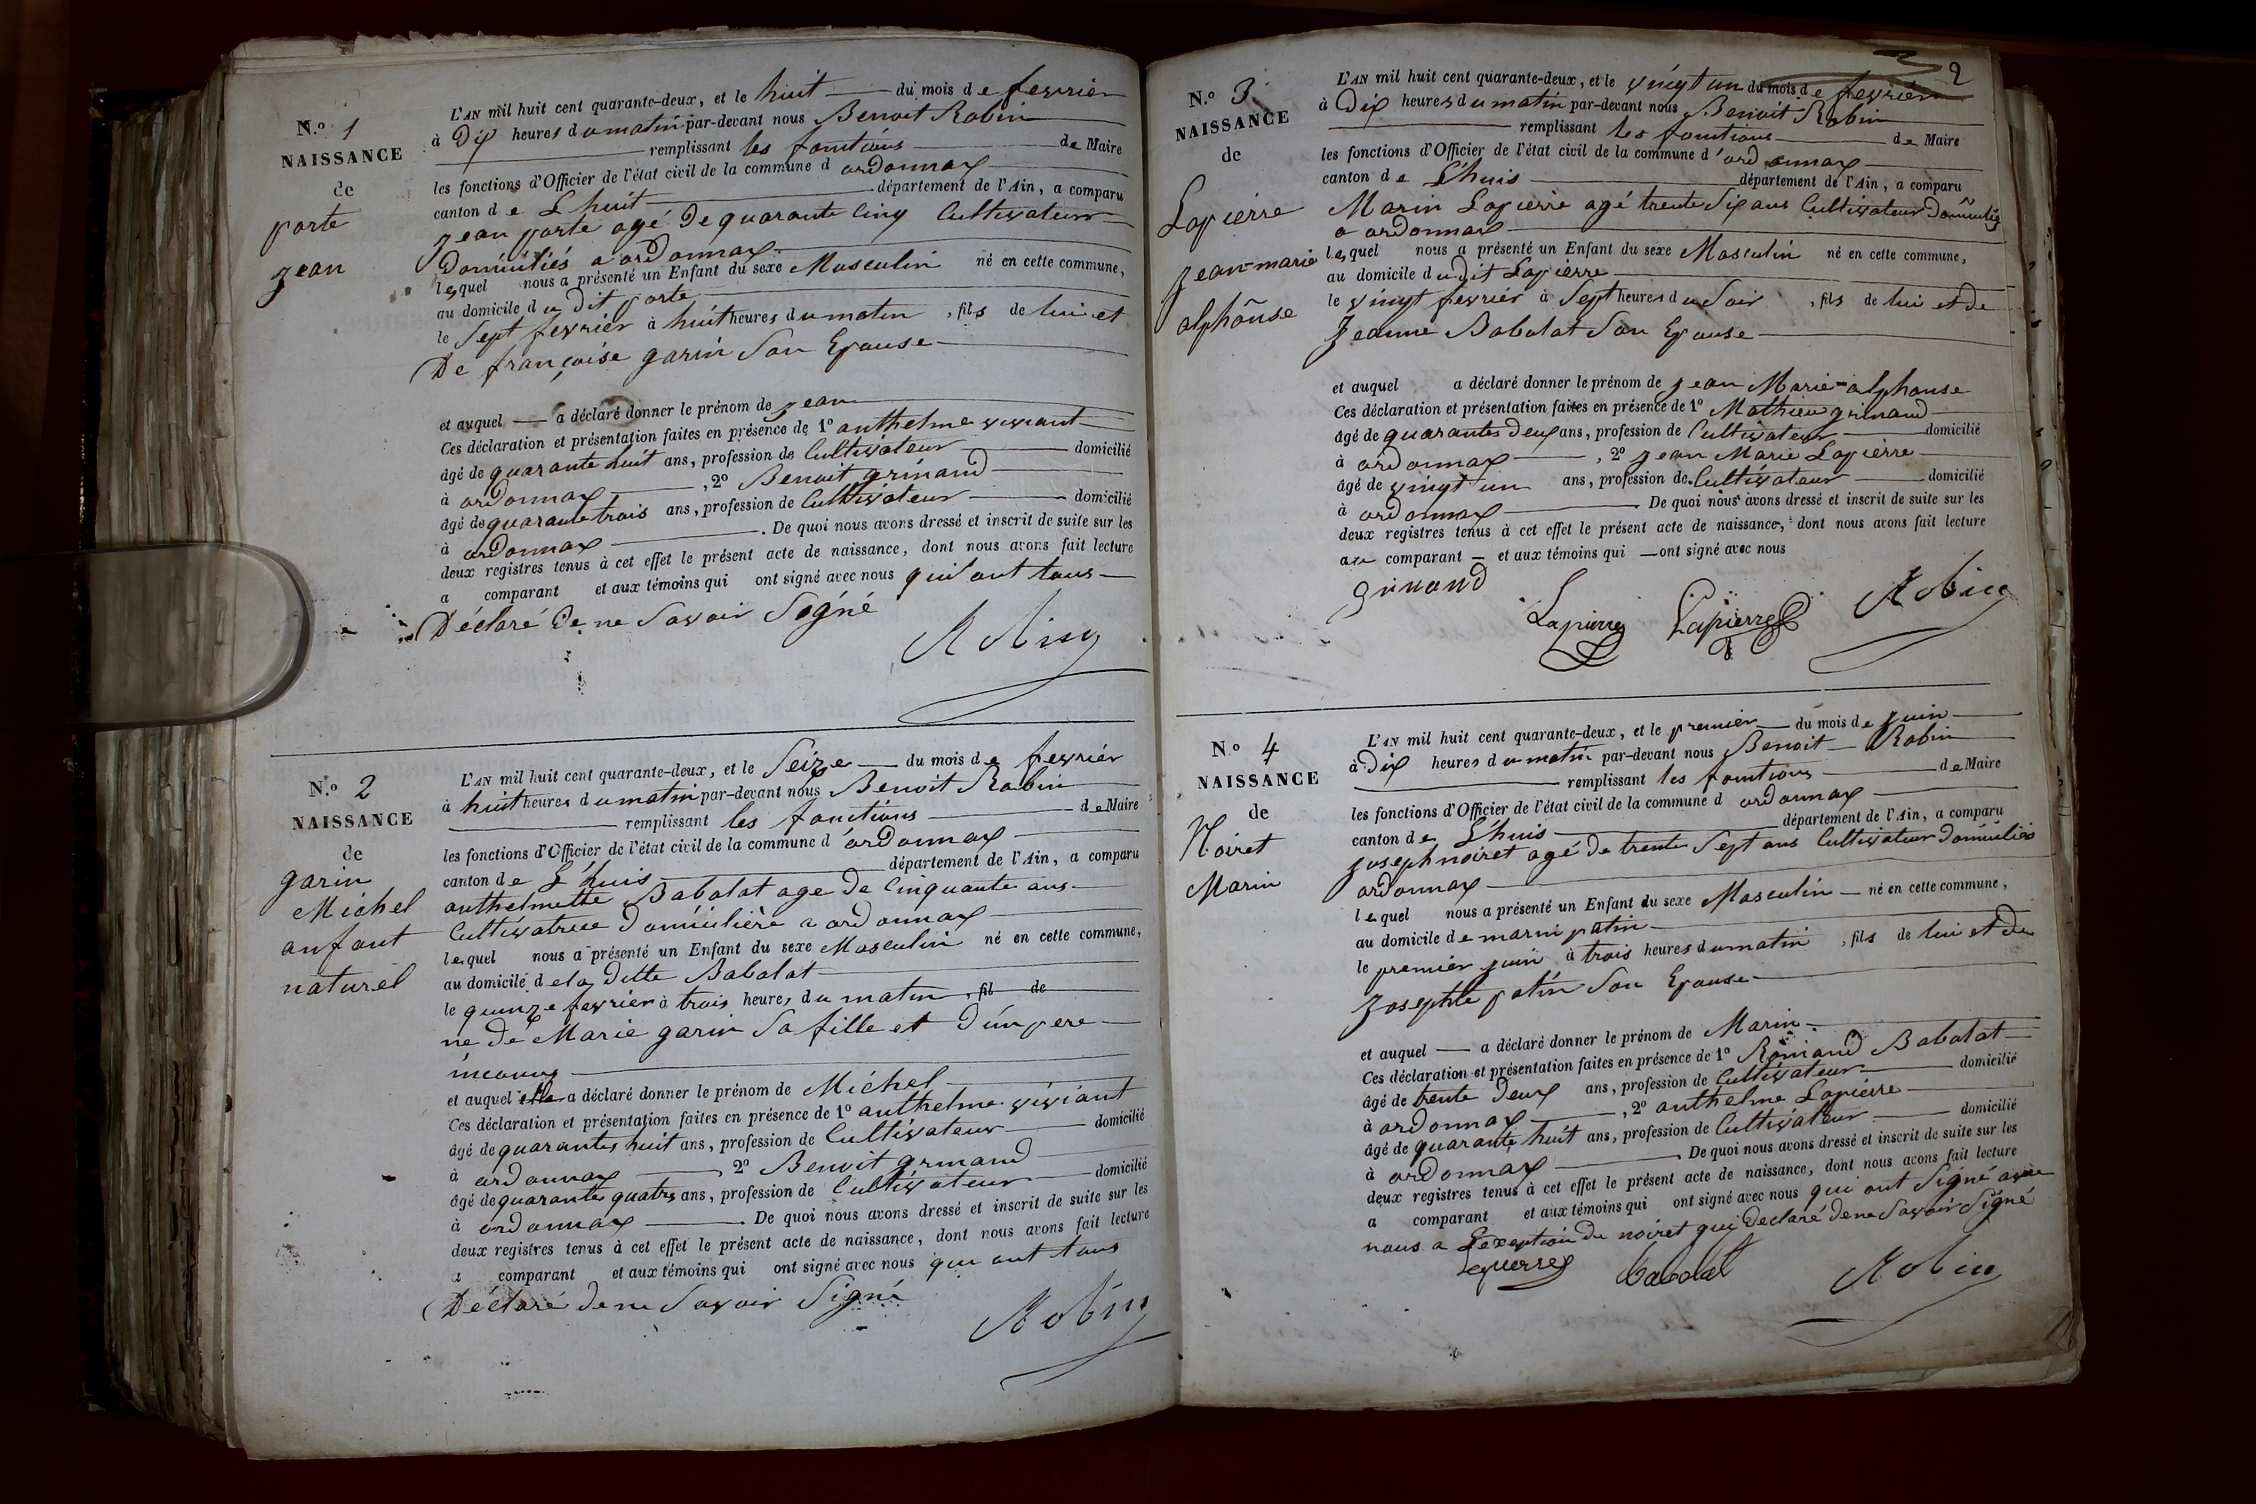 N.o 1
NAISSANCE
de
porte
jean
L'AN mil huit cent quarante-deux, et le huit du mois de fevrier
à Dix heures du matin par-devant nous Benoit Robin
remplissant les fonctions de Maire
les fonctions d'Officier de l'état civil de la commune d ordonnax
canton de L'huit département de l'Ain, a comparu
jean porte agé De quarante Cinq Cultivateur
Domiciliés a ordonnax
lequel nous a présenté un Enfant du sexe Masculin né en cette commune,
au domicile du Dit porte
le Sept fevrier à huit heures du matin, fils de lui et
De françoise garin Son Epouse
et auquel a déclaré donner le prénom de jean
Ces déclaration et présentation faites en présence de 1o anthelme viviant
âgé de quarante huit ans, profession de Cultivateur domicilié
à ordonnax, 2o Benoit grinand
âgé de quarante trois ans, profession de Cultivateur domicilié
à ordonnax. De quoi nous avons dressé et inscrit de suite sur les
deux registres tenus à cet effet le présent acte de naissance, dont nous avons fait lecture
a comparant et aux témoins qui ont signé avec nous qui ont tous
Déclaré De ne Savoir Signé
Robin
N.o 2
NAISSANCE
de
garin
Michel
anfant
naturel
L'AN mil huit cent quarante-deux, et le Seize du mois de fevrier
à huit heures du matin par-devant nous Benoit Robin
remplissant les fonctions de Maire
les fonctions d'Officier de l'état civil de la commune d'ordonnax
canton de L'huis département de l'Ain, a comparu
anthelmette Babolat age De Cinquante ans
Cultivatrice Domicilière a ordonnax
lequel nous a présenté un Enfant du sexe Masculin né en cette commune,
au domicile de la Ditte Babolat
le quinze fevrier à trois heures du matin, fil de
né de Marie garin Sa fille et D'un pere
inconnu
et auquel elle a déclaré donner le prénom de Michel
Ces déclaration et présentation faites en présence de 1o anthelme viviant
âgé de quarantes huit ans, profession de Cultivateur domicilié
à ordonnax 2o Benoit grinand
âgé de quarantes quatre ans, profession de Cultivateur domicilié
à ordonnax. De quoi nous avons dressé et inscrit de suite sur les
deux registres tenus à cet effet le présent acte de naissance, dont nous avons fait lecture
a comparant et aux témoins qui ont signé avec nous qui ont tous
Déclaré De ne Savoir Signé
Robin
2
N.o 3
NAISSANCE
de
Lapierre
jean-marie
alphonse
L'AN mil huit cent quarante-deux, et le vingt un du mois de fevrier
à Dix heures du matin par-devant nous Benoit Robin
remplissant les fonctions de Maire
les fonctions d'Officier de l'état civil de la commune d'ordonnax
canton de L'huis département de l'Ain, a comparu
Marin Lapierre agé trente Six ans Cultivateur Domicilié
a ordonnax
lequel nous a présenté un Enfant du sexe Masculin né en cette commune,
au domicile du Dit Lapierre
le vingt fevrier à Sept heures du Soir, fils de lui et de
jeanne Babolat Son Epouse
et auquel a déclaré donner le prénom de jean Marie-alphonse
Ces déclaration et présentation faites en présence de 1o Mathieu grinand
âgé de quarantes Deux ans, profession de Cultivateur domicilié
à ordonnax, 2o jean Marie Lapierre
âgé de vingt un ans, profession de Cultivateur domicilié
à ordonnax De quoi nous avons dressé et inscrit de suite sur les
deux registres tenus à cet effet le présent acte de naissance, dont nous avons fait lecture
au comparant et aux témoins qui ont signé avec nous
Grinand Lapierre Lapierre Robin
No 4
NAISSANCE
de
Noiret
Marin
L'AN mil huit cent quarante-deux, et le premier du mois de juin
à Dix heures du matin par-devant nous Benoit Robin
remplissant les fonctions de Maire
les fonctions d'Officier de l'état civil de la commune d ordonnax
canton de L'huis département de l'Ain, a comparu
joseph noiret agé De trente Sept ans Cultivateur Domiciliés
ordonnax
lequel nous a présenté un Enfant du sexe Masculin né en cette commune,
au domicile de marin patin
le premier juin à trois heures du matin, fils de lui et De
josephte patin Son Epouse
et auquel a déclaré donner le prénom de Marin
Ces déclaration et présentation faites en présence de 1o Romand Babolat
âgé de trente Deux ans, profession de Cultivateur domicilié
à ordonnax, 2o anthelme Lapierre
âgé de quarante huit ans, profession de Cultivateur domicilié
à ordonnax. De quoi nous avons dressé et inscrit de suite sur les
deux registres tenus à cet effet le présent acte de naissance, dont nous avons fait lecture
a comparant et aux témoins qui ont signé avec nous qui ont Signé avec
nous a L'exeption Du noiret qui Declaré De ne Savoir Signé
babolat Robin